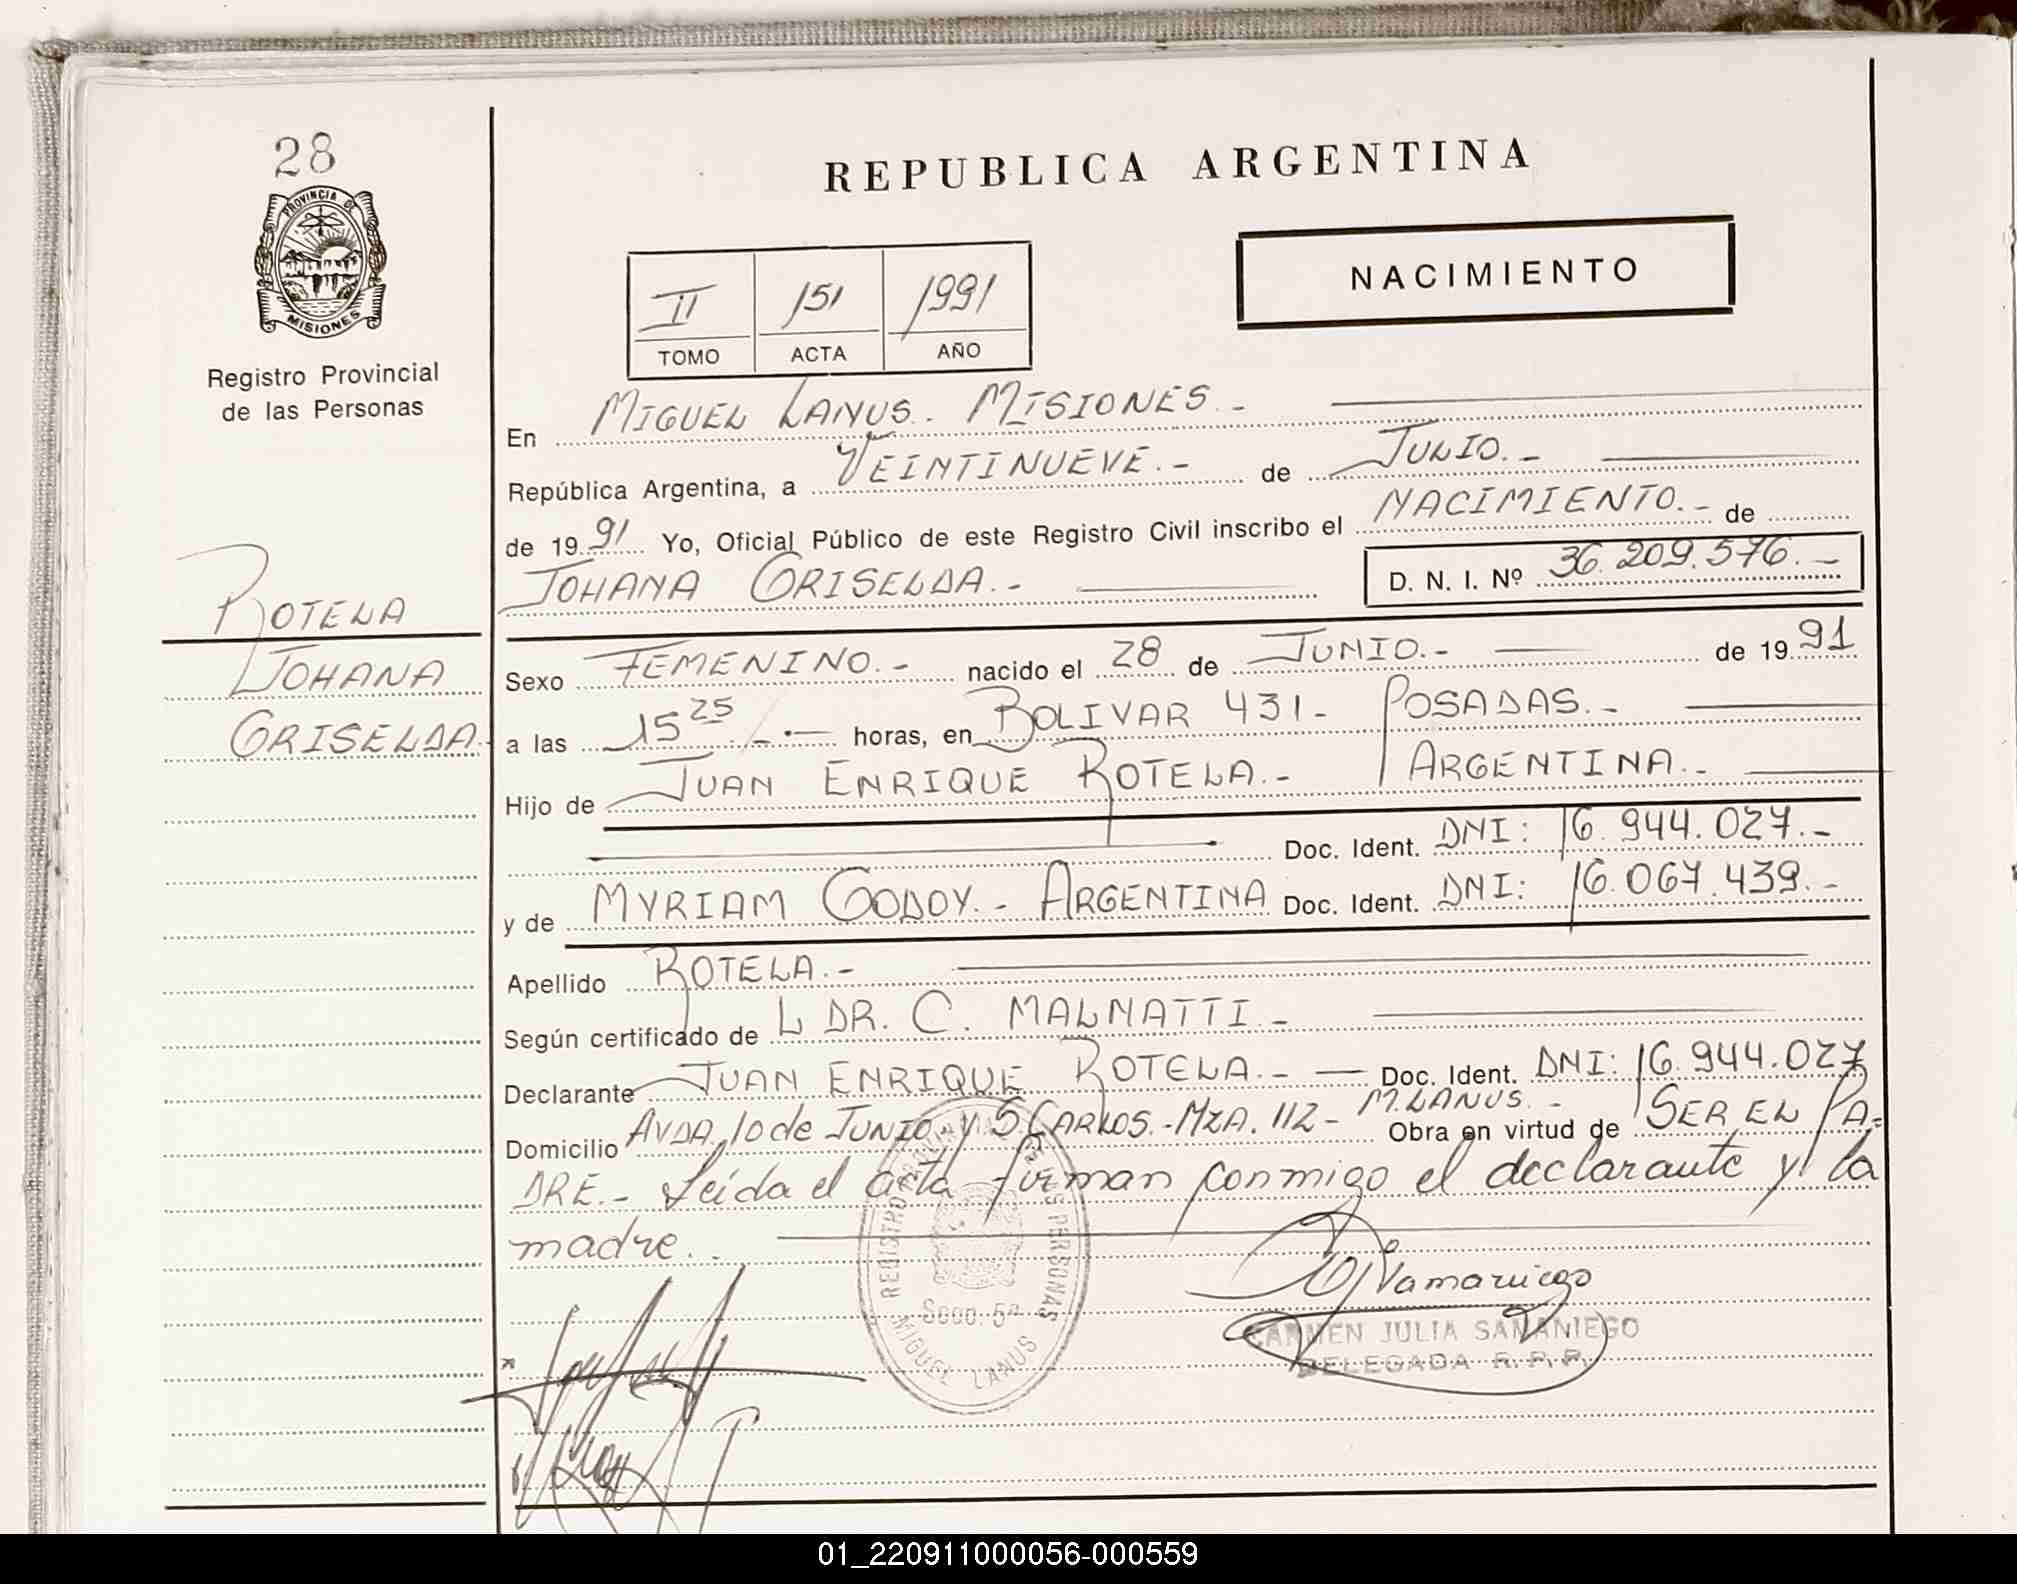 28
PROVINCIA DE
MISIONES
Registro Provincial
de las Personas
ROTELA
JOHANA
GRISELDA.
REPUBLICA ARGENTINA
NACIMIENTO
II 151 1991
TOMO ACTA AÑO
En MIGUEL LANUS.. MISIONES.-
República Argentina, a VEINTINUEVE.- de JULIO.-
de 1991 Yo, Oficial Público de este Registro Civil inscribo el NACIMIENTO.- de
JOHANA GRISELDA.- D. N. I. Nº 36.209.576.-
Sexo FEMENINO.- nacido el 28 de JUNIO.- de 1991
a las 15 25 horas, en BOLIVAR 431- POSADAS.-
Hijo de JUAN ENRIQUE ROTELA.- ARGENTINA.-
Doc. Ident. DNI: 16.944.027.-
y de MYRIAM GODOY.- ARGENTINA Doc. Ident. DNI: 16.067.439.-
Apellido ROTELA.-
Según certificado de L DR. C. MALNATTI.-
Declarante JUAN ENRIQUE ROTELA.- Doc. Ident. DNI: 16.944.027
Domicilio AVDA. 10 de JUNIO y S. CARLOS.-MZA. 112- M. LANUS.- Obra en virtud de SER EL PA-
DRE.- Leída el acta firman conmigo el declarante y la
madre..
REGISTRO PROVINCIAL DE LAS PERSONAS
Secc. 5ª
MIGUEL LANUS
CJSamaniego
CARMEN JULIA SAMANIEGO
DELEGADA R. P. P.
01_220911000056-000559